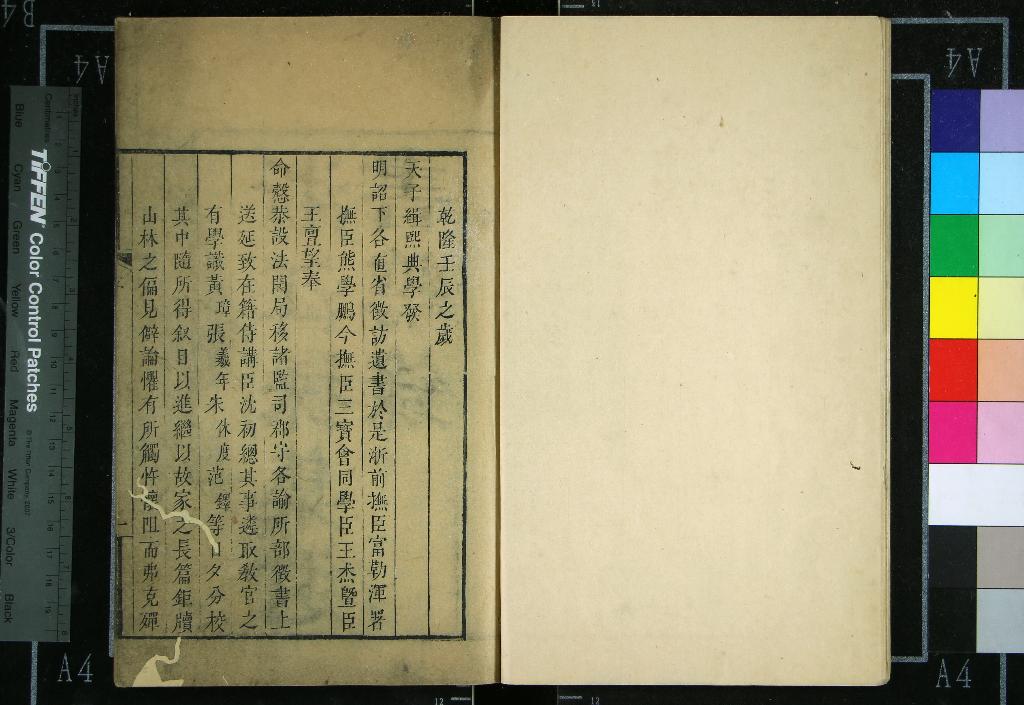 乾隆壬辰之歲
天子緝熙典學發
明詔下各直省徵訪遺書於是浙前撫臣富勒渾署
撫臣熊學鵬今撫臣三寶會同學臣王杰曁臣
王亶望奉
命慤恭設法開局移諸監司郡守各諭所部徵書上
送延致在籍侍講臣沈初總其事遴取敎官之
有學識黃璋張羲年朱休度范鏴等日夕分校
其中隨所得叙目以進繼以故家之長篇鉅牘
山林之偏見僻論懼有所觸忤懷阻而弗克殫
TIFFEN Color Control Patches
© The Tiffen Company, 2007
Centimetres
Inches
Blue
Cyan
Green
Yellow
Red
Magenta
White
3/Color
Black
A4
A4
A4
A4
B4